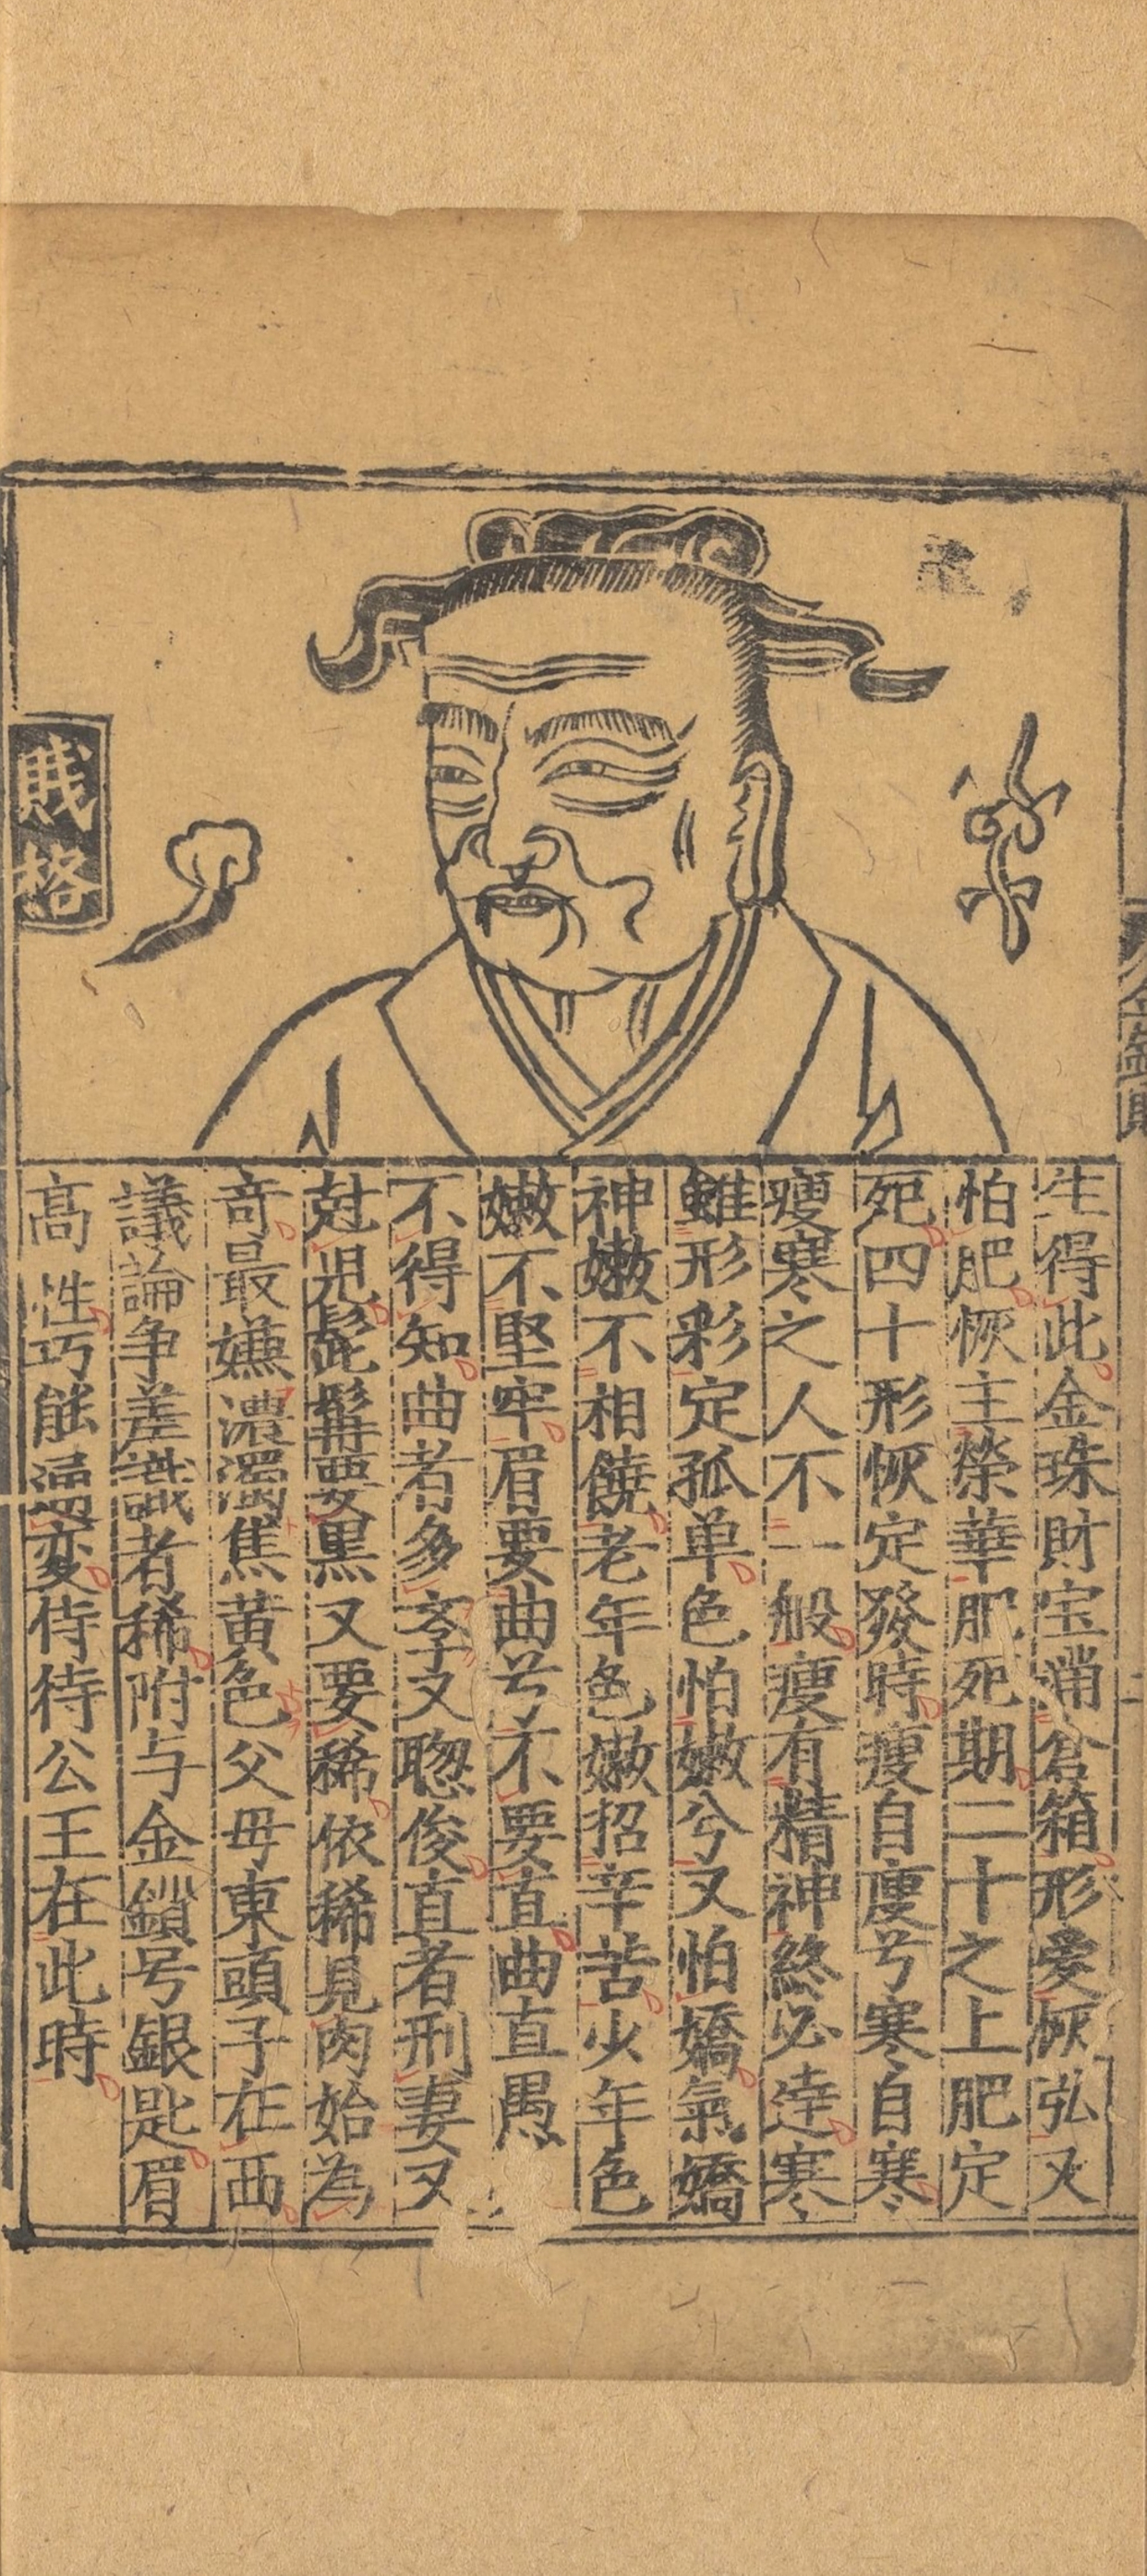 賎格
生得此金珠財宝滿倉箱形爱恢弘又
怕肥恢主榮華肥死期二十之上肥定
死四十形恢定發時瘦自瘦兮寒自寒
瘦寒之人不一般瘦有精神終必達寒
雖形彩定孤单色怕嫩兮又怕嬌氣嬌
神嫩不相饒老年色嫩招辛苦少年色
嫩不堅牢眉要曲兮不要直曲直愚
不得知曲者多孛又聦俊直者刑妻又
尅児髭髯要黒又要稀依稀見肉始為
竒最嫌濃濁焦黄色父毋東頭子在西
議論争差識者稀附与金鎖号銀匙眉
髙性巧能逼変侍待公王在此時